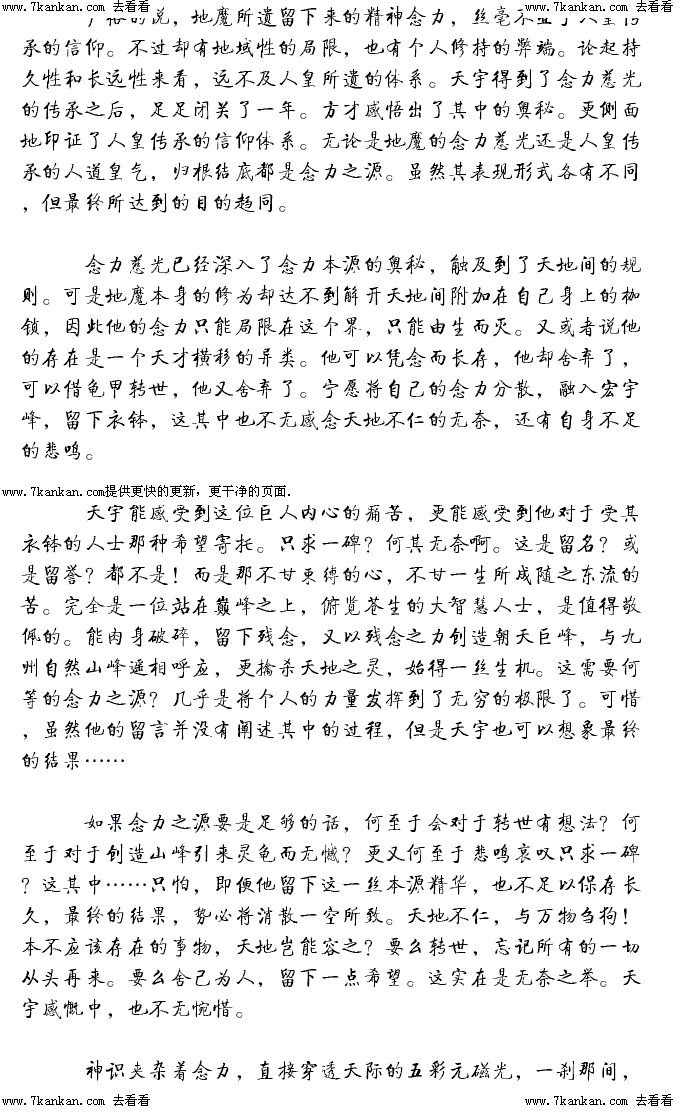 www.7kankan.com 去看看 www.7kankan.com 去看看
的说，地魔所遗留下来的精神念力，丝毫不亚于人皇传
承的信仰。不过却有地域性的局限，也有个人修持的弊端。论起持
久性和长远性来看，远不及人皇所遗的体系。天宇得到了念力慈光
的传承之后，足足闭关了一年。方才感悟出了其中的奥秘。更侧面
地印证了人皇传承的信仰体系。无论是地魔的念力慈光还是人皇传
承的人道皇气，归根结底都是念力之源。虽然其表现形式各有不同
，但最终所达到的目的趋同。
念力慈光已经深入了念力本源的奥秘，触及到了天地间的规
则。可是地魔本身的修为却达不到解开天地间附加在自己身上的枷
锁，因此他的念力只能局限在这个界，只能由生而灭。又或者说他
的存在是一个天才横移的异类。他可以凭念而长存，他却舍弃了，
可以借龟甲转世，他又舍弃了。宁愿将自己的念力分散，融入宏宇
峰，留下衣钵，这其中也不无感念天地不仁的无奈，还有自身不足
的悲鸣。
www.7kankan.com提供更快的更新，更干净的页面.
天宇能感受到这位巨人内心的痛苦，更能感受到他对于受其
衣钵的人士那种希望寄托。只求一碑？何其无奈啊。这是留名？或
是留誉？都不是！而是那不甘束缚的心，不甘一生所成随之东流的
苦。完全是一位站在巅峰之上，俯览苍生的大智慧人士，是值得敬
佩的。能肉身破碎，留下残念，又以残念之力创造朝天巨峰，与九
州自然山峰遥相呼应，更擒杀天地之灵，始得一丝生机。这需要何
等的念力之源？几乎是将个人的力量发挥到了无穷的极限了。可惜
，虽然他的留言并没有阐述其中的过程，但是天宇也可以想象最终
的结果……
如果念力之源要是足够的话，何至于会对于转世有想法？何
至于对于创造山峰引来灵龟而无憾？更又何至于悲鸣哀叹只求一碑
？这其中……只怕，即便他留下这一丝本源精华，也不足以保存长
久，最终的结果，势必将消散一空所致。天地不仁，与万物刍狗！
本不应该存在的事物，天地岂能容之？要么转世，忘记所有的一切
从头再来。要么舍己为人，留下一点希望。这实在是无奈之举。天
宇感慨中，也不无惋惜。
神识夹杂着念力，直接穿透天际的五彩元磁光，一刹那间，
www.7kankan.com 去看看 www.7kankan.com 去看看